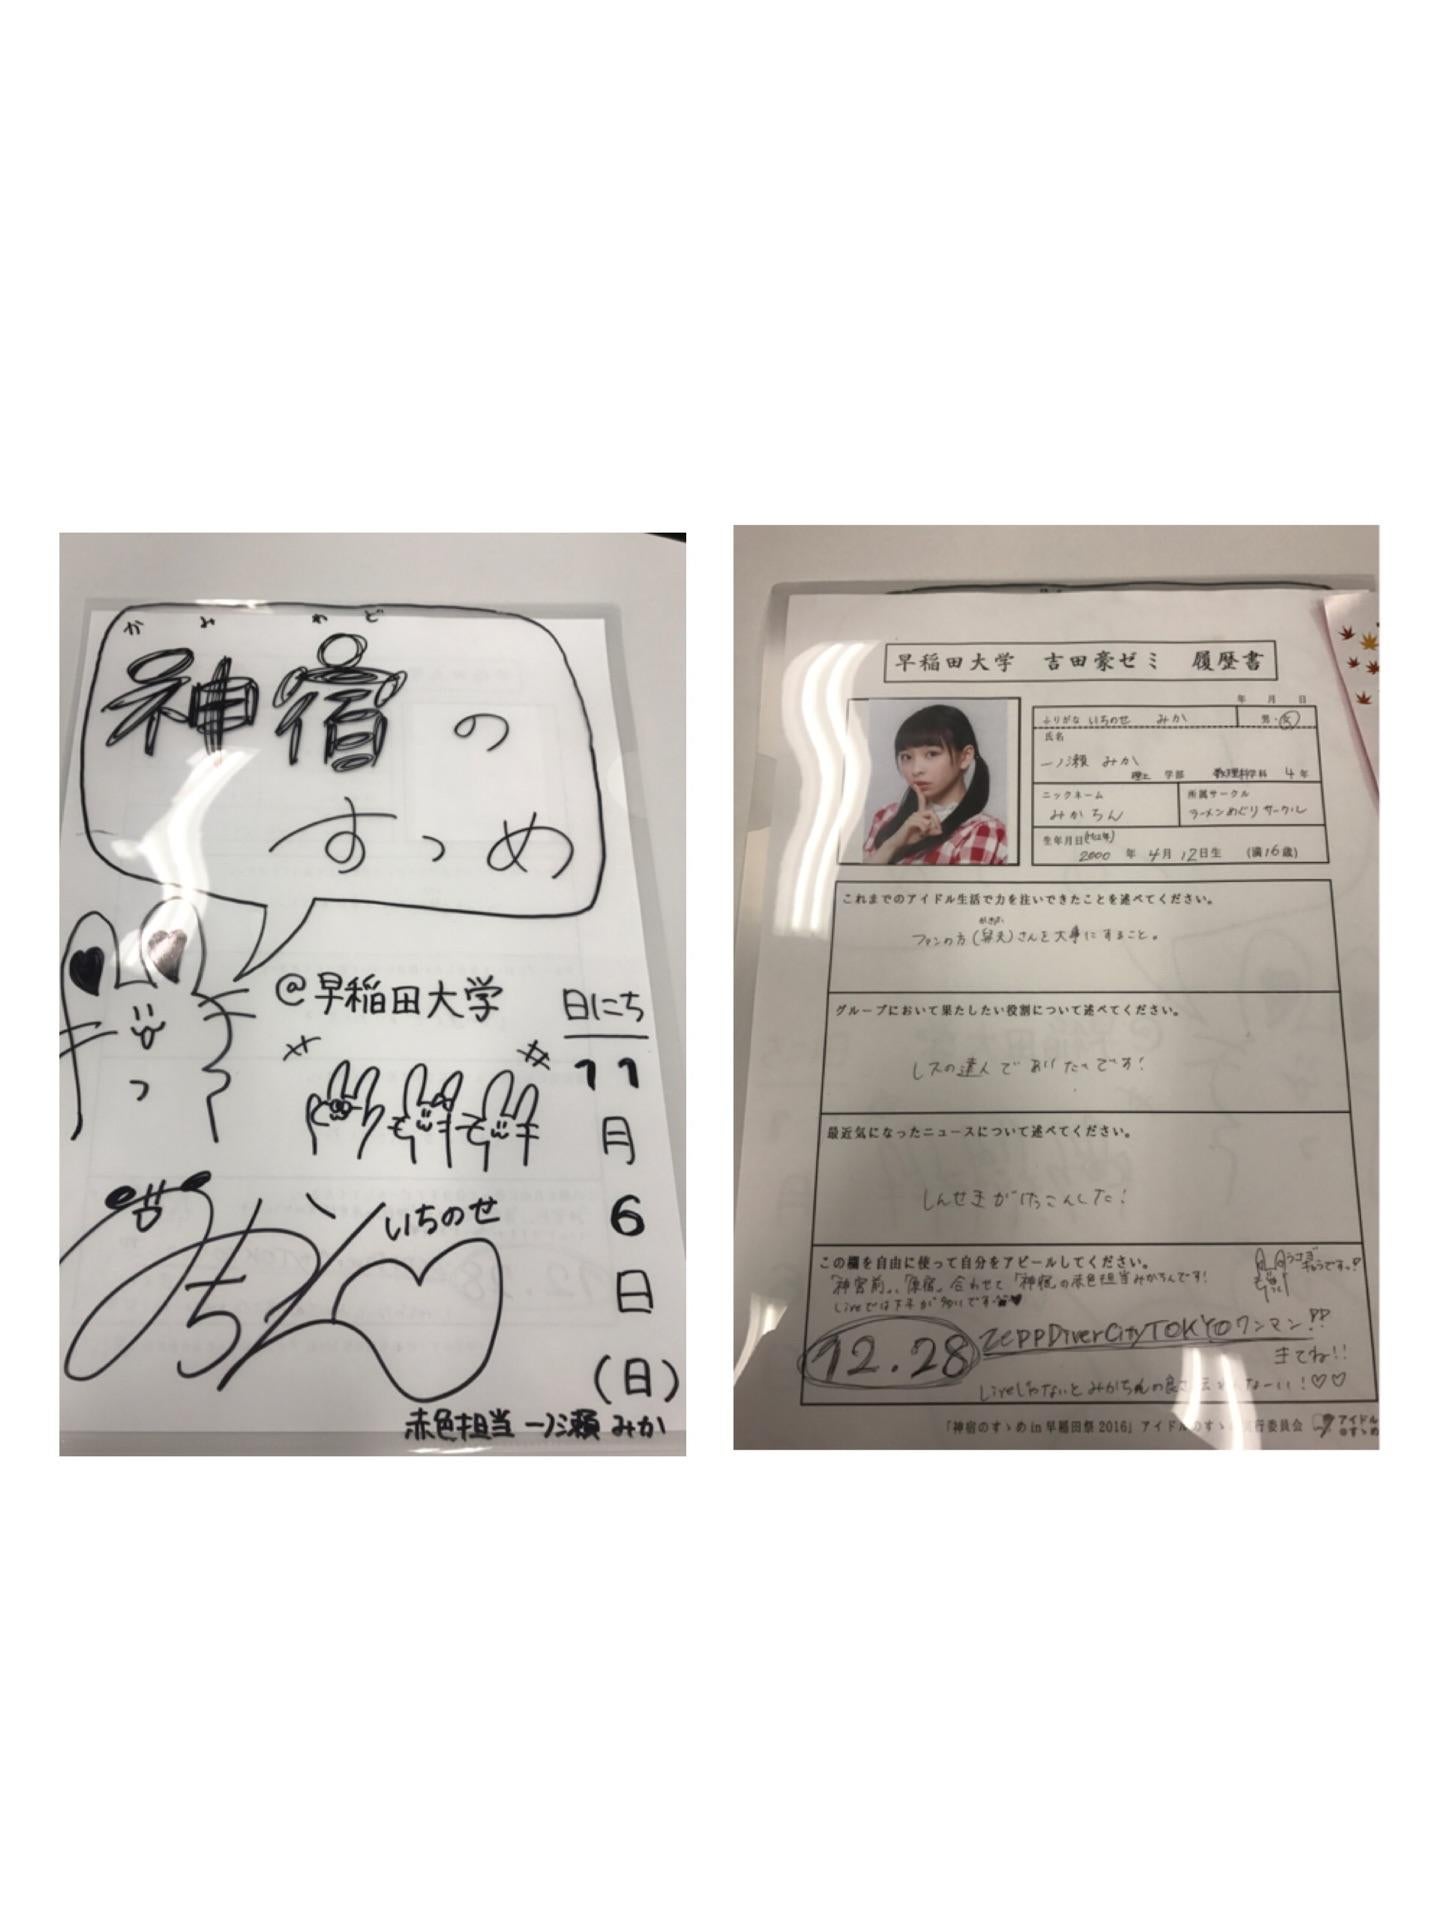 かみやど
神宿の
すゝめ
@早稲田大学
日にち
11
月
6
日
(日)
いちのせ
赤色担当 一ノ瀬 みか
早稲田大学 吉田豪ゼミ 履歴書
年 月 日
ふりがな いちのせ みか
男・女
氏名
一ノ瀬 みか
理工 学部 数理科学科 4年
ニックネーム
みかちん
所属サークル
ラーメンめぐりサークル
生年月日
2000 年 4月 12日生 (満16歳)
これまでのアイドル生活で力を注いできたことを述べてください。
ファンの方(舁夫)さんを大事にすること。
グループにおいて果たしたい役割について述べてください。
レスの達人でありたいです!
最近気になったニュースについて述べてください。
しんせきがけっこんした!
この欄を自由に使って自分をアピールしてください。
「神宮前」、「原宿」合わせて「神宿」の赤色担当みかちんです!
うさぎ
12.28
ZeppDiverCityTOKYOワンマン!!
きてね!!
Liveじゃないとみかちんの良さ伝わんなーい!♡♡
「神宿のすゝめ in 早稲田祭 2016」アイドルのすゝめ実行委員会
アイドル
のすゝめ